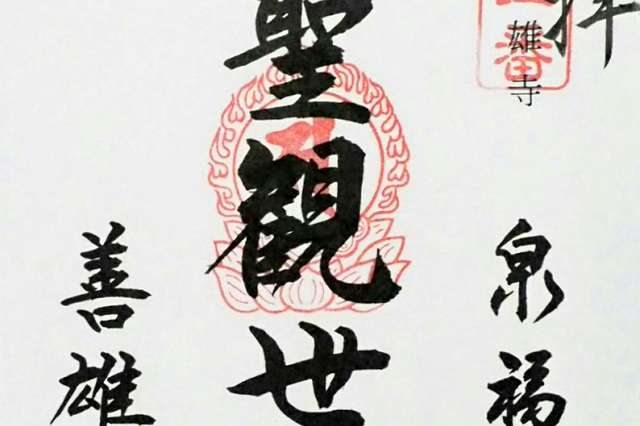 拝
番
雄寺
泉福
聖観世
善雄